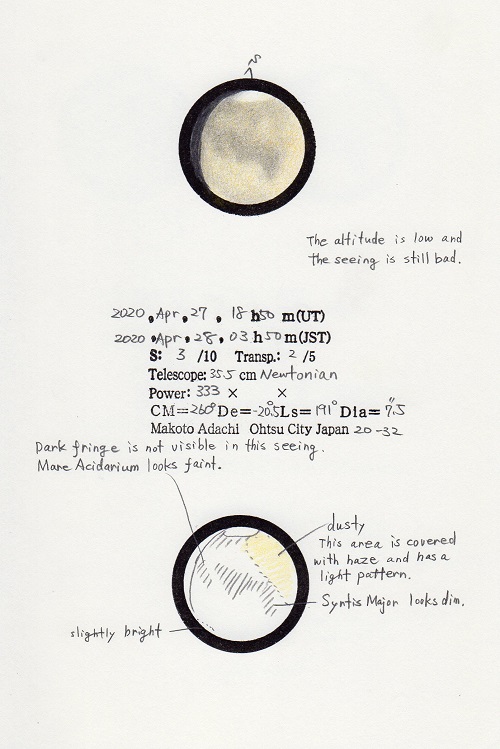 S
The altitude is low and
the seeing is still bad.
2020, Apr, 27, 18 h 50 m(UT)
2020, Apr, 28, 03 h 50 m(JST)
S: 3 /10 Transp.: 2 /5
Telescope: 35.5 cm Newtonian
Power: 333 × ×
CM=260° De=-20.5° Ls=191° Dia=7.5"
Makoto Adachi Ohtsu City Japan 20-32
Dark fringe is not visible in this seeing.
Mare Acidarium looks faint.
dusty
This area is covered
with haze and has a
light pattern.
Syntis Major looks dim.
slightly bright